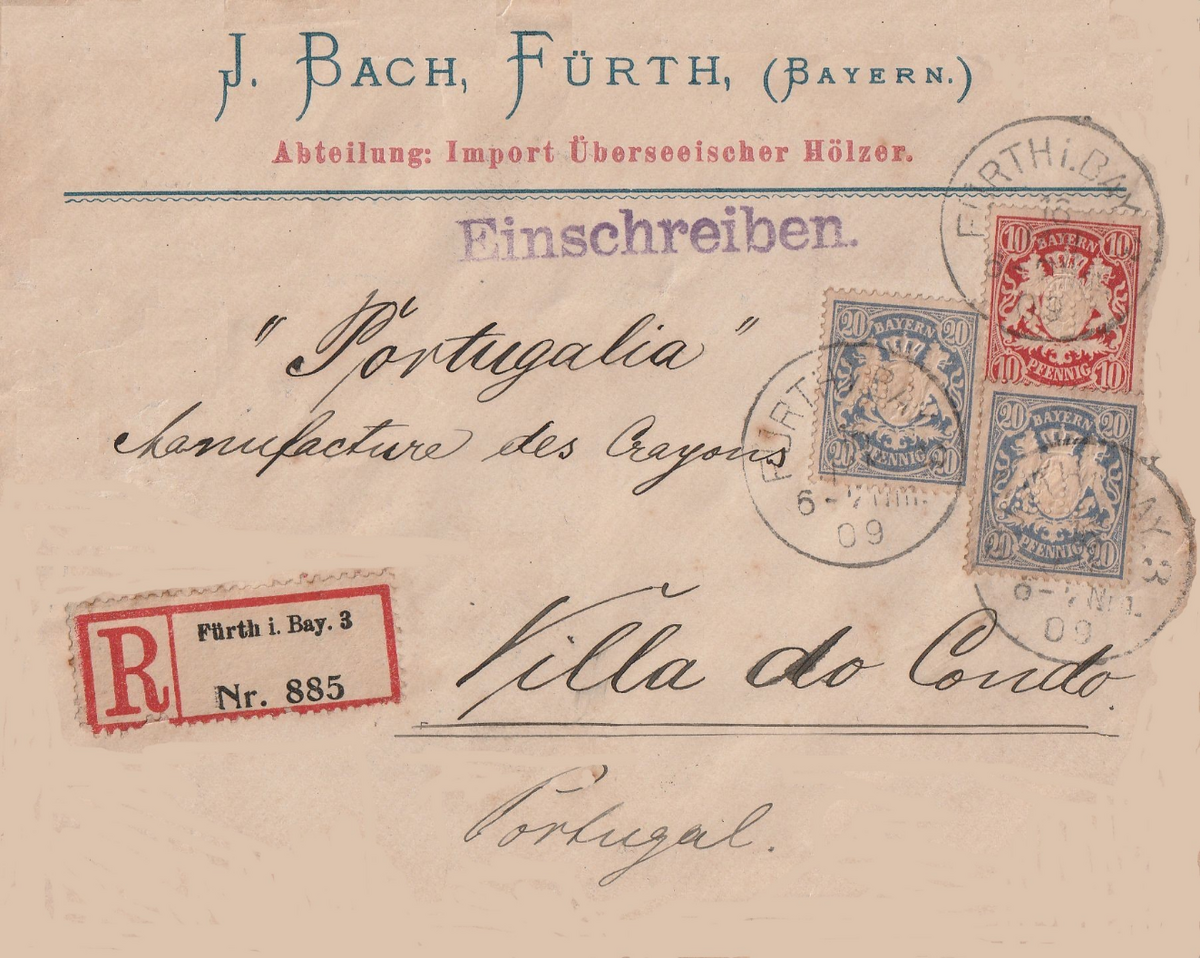 J. BACH, FÜRTH, (BAYERN.)
Abteilung: Import Überseeischer Hölzer.
Einschreiben.
FÜRTH i. BAY
16
09
10 BAYERN 10
10 PFENNIG 10
20 BAYERN 20
20 PFENNIG 20
20 BAYERN 20
20 PFENNIG 20
"Portugalia"
Manufacture des Crayons
FÜRTH i. BAY
6-7 Nm.
09
BAY. 3
6-7 Nm.
09
R
Fürth i. Bay. 3
Nr. 885
Villa do Condo.
Portugal.